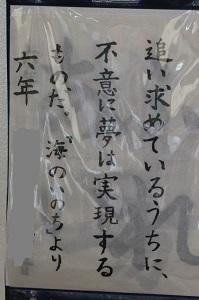 追い求めているうちに、
不意に夢は実現する
ものだ。『海のいのち』より
六年